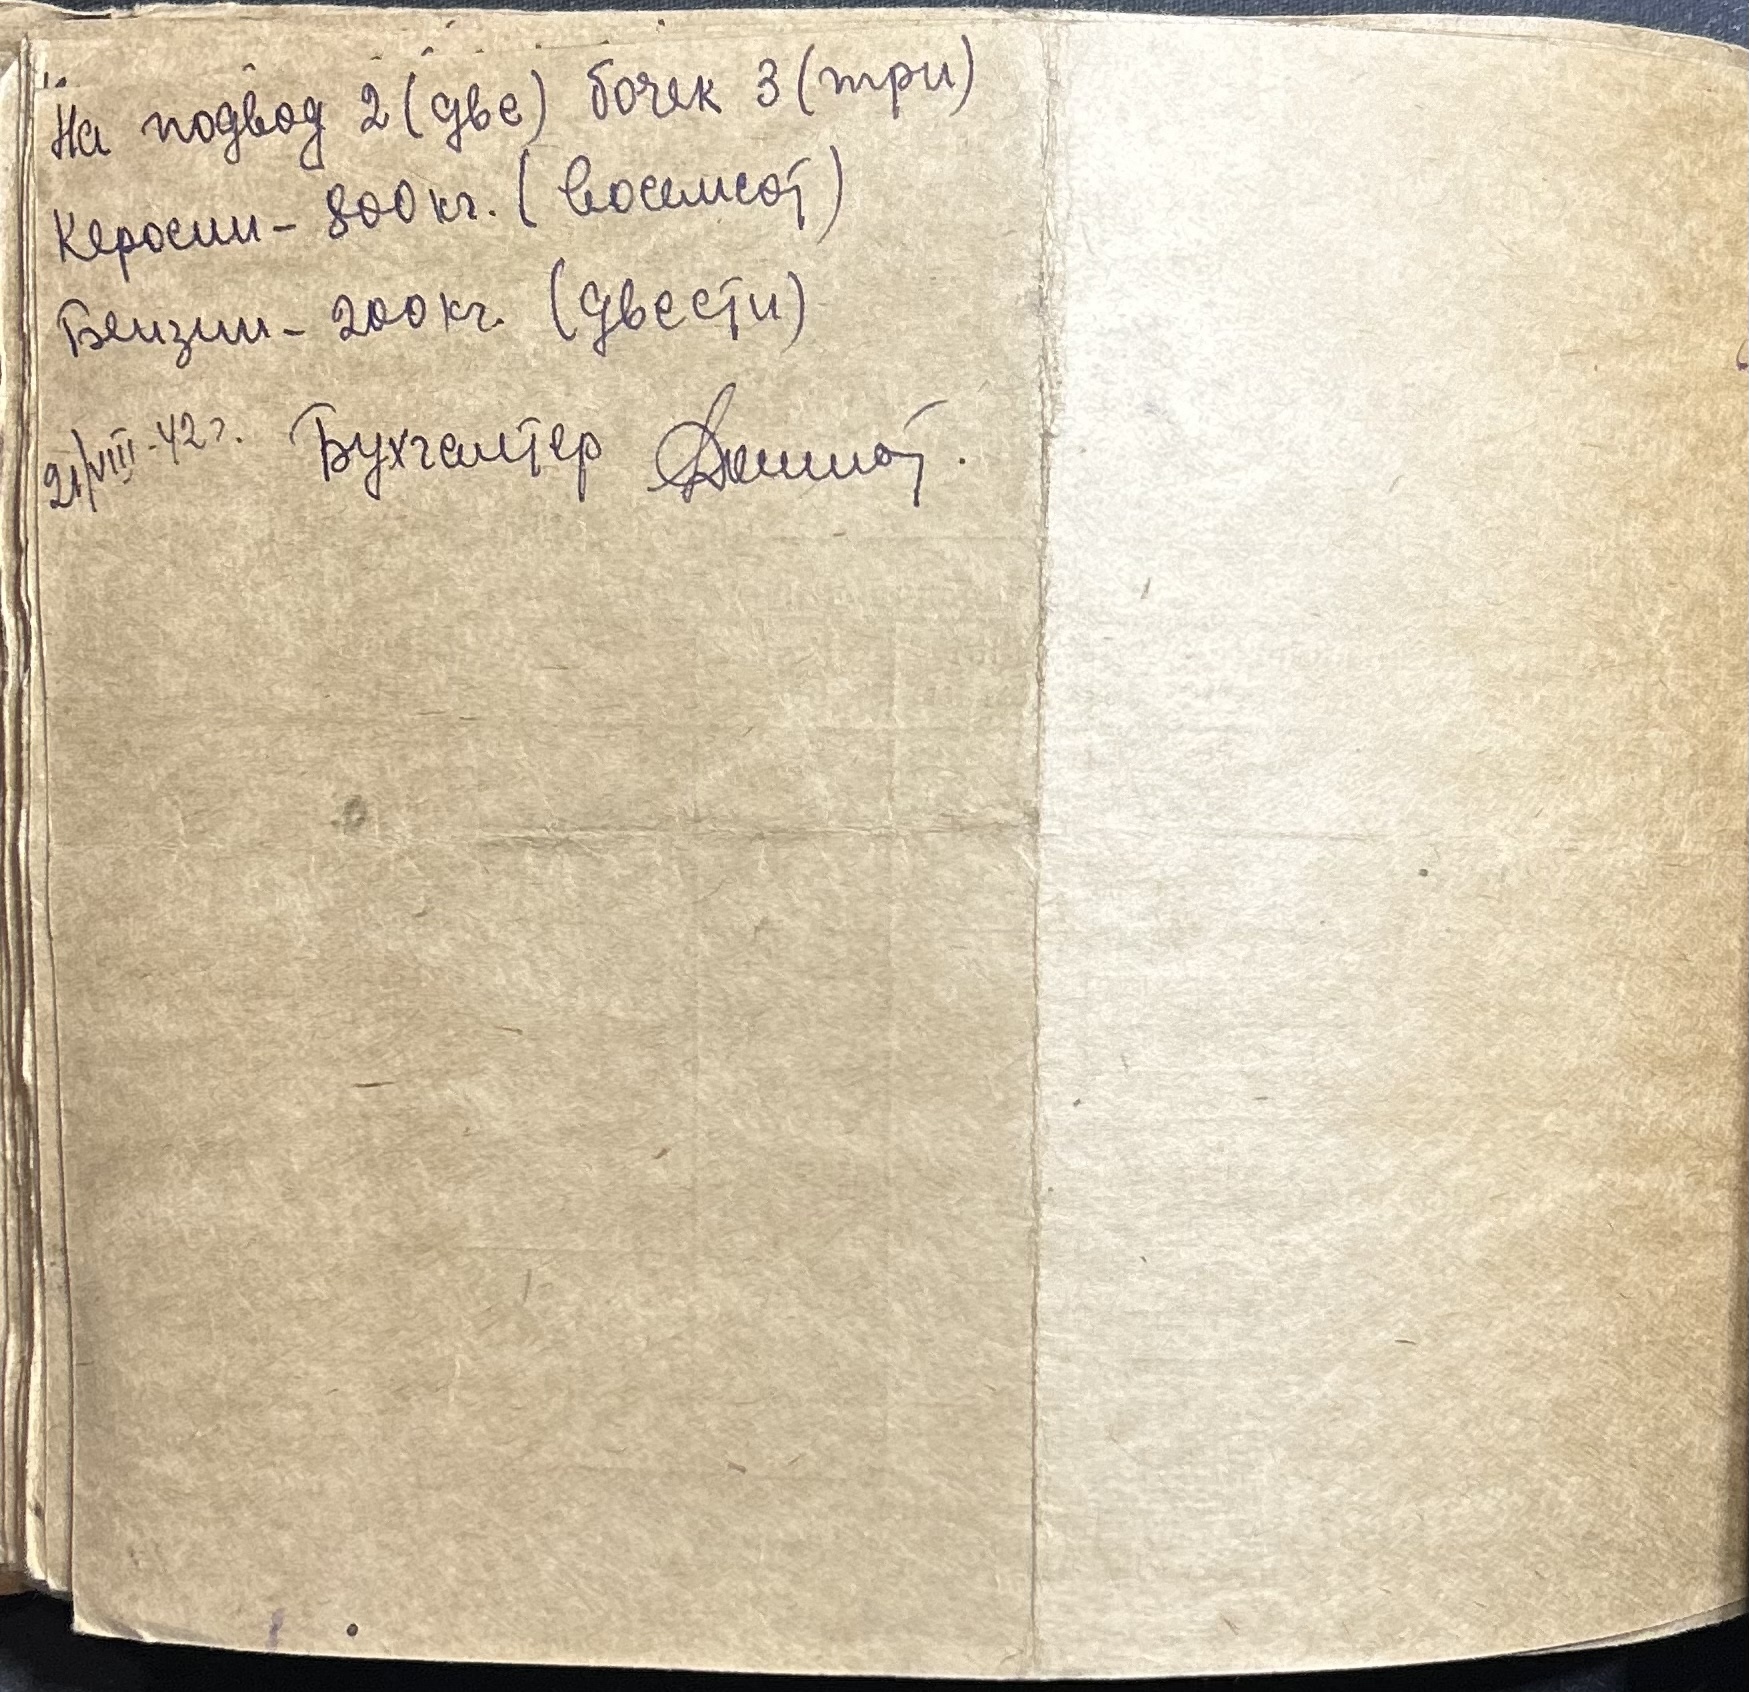 На подвод 2 (две) бочек 3 (три)
Керосин - 800 кг. (восемсот)
Бензин - 200 кг. (двести)
21/VIII-42 г. Бухгалтер